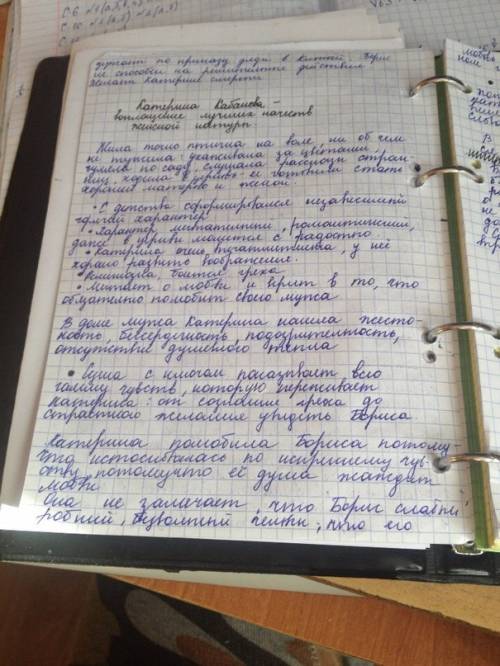 уезжает по приказу дяди в Кяхту. Борис
не способен на решительные действия
желает Катерине смерти
Катерина Кабанова -
воплощение лучших качеств
женской натуры.
Жила точно птичка на воле, ни об чём
не тужила: ухаживала за цветами,
гуляла по саду, слушала рассказы стран-
ниц, ходила в церковь. её готовили стать
хорошей матерью и женой.
• С детства сформировался независимый
горячий характер.
• Характер мечтательный, романтический,
даже в церкви молится с радостью.
• Катерина очень впечатлительна, у неё
хорошо развито воображение.
• боится греха
• Мечтает о любви и верит в то, что
обязательно полюбит своего мужа.
В доме мужа Катерина нашла жесто-
кость, бессердечность, подозрительность,
отсутствие душевного тепла
• Сцена с ключом показывает всю
гамму чувств, которую переживает
Катерина: от сознания греха до
страстного желания увидеть Бориса.
Катерина полюбила Бориса потому-
что истосковалась по искреннему чув-
ству, потомучто её душа жаждет
любви
Она не замечает, что Борис слабый
робкий, безвольный человек, что его